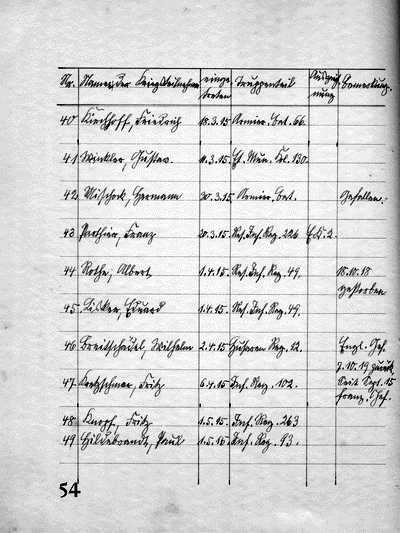 Nr. Namen der Kriegsteilnehmer eingetreten Truppenteil Auszeichnung Bemerkung.
40 Kirchhoff, Friedrich 18.3.15 Armier. Bat. 66.
41 Winkler, Gustav. 11.3.15 Mun. Kol. 130.
42 Hermann 30.3.15 Armier. Bat. Gefallen.
43 Franz 20.3.15 Res. Inf. Reg. 226 E.K. 2.
44 Rothe, Albert 1.4.15 Res. Inf. Reg. 49. 18.10.18
gestorben
45 Eduard 1.4.15 Res. Inf. Reg. 49.
46 Breitschädel, Wilhelm 2.4.15 Husaren Reg. 12. Engl. Gef.
7.10.19 zurück
47 Kretzschmar, Fritz 6.4.15 Inf. Reg. 102. Seit Sept. 15
franz. Gef.
48 Knopf, Fritz 1.5.15 Inf. Reg. 263
49 Hildebrandt, Paul 1.5.15 Inf. Reg. 93.
54